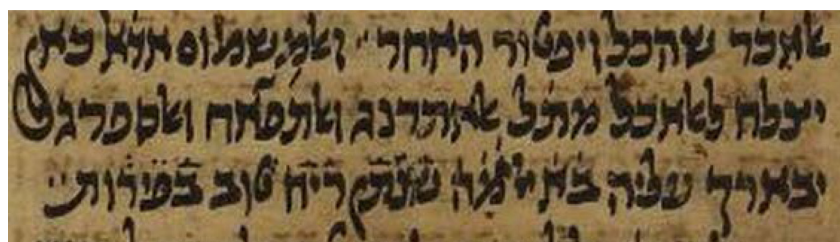 אלאכר שהכל ויפטור האחר ·· ואלמשמום אדא כאן
יצלח ללאכל מתל אלאתרנג ואלתפאח ואלספרגל
יבארך עליה שנתן ריח טוב בפירות ··